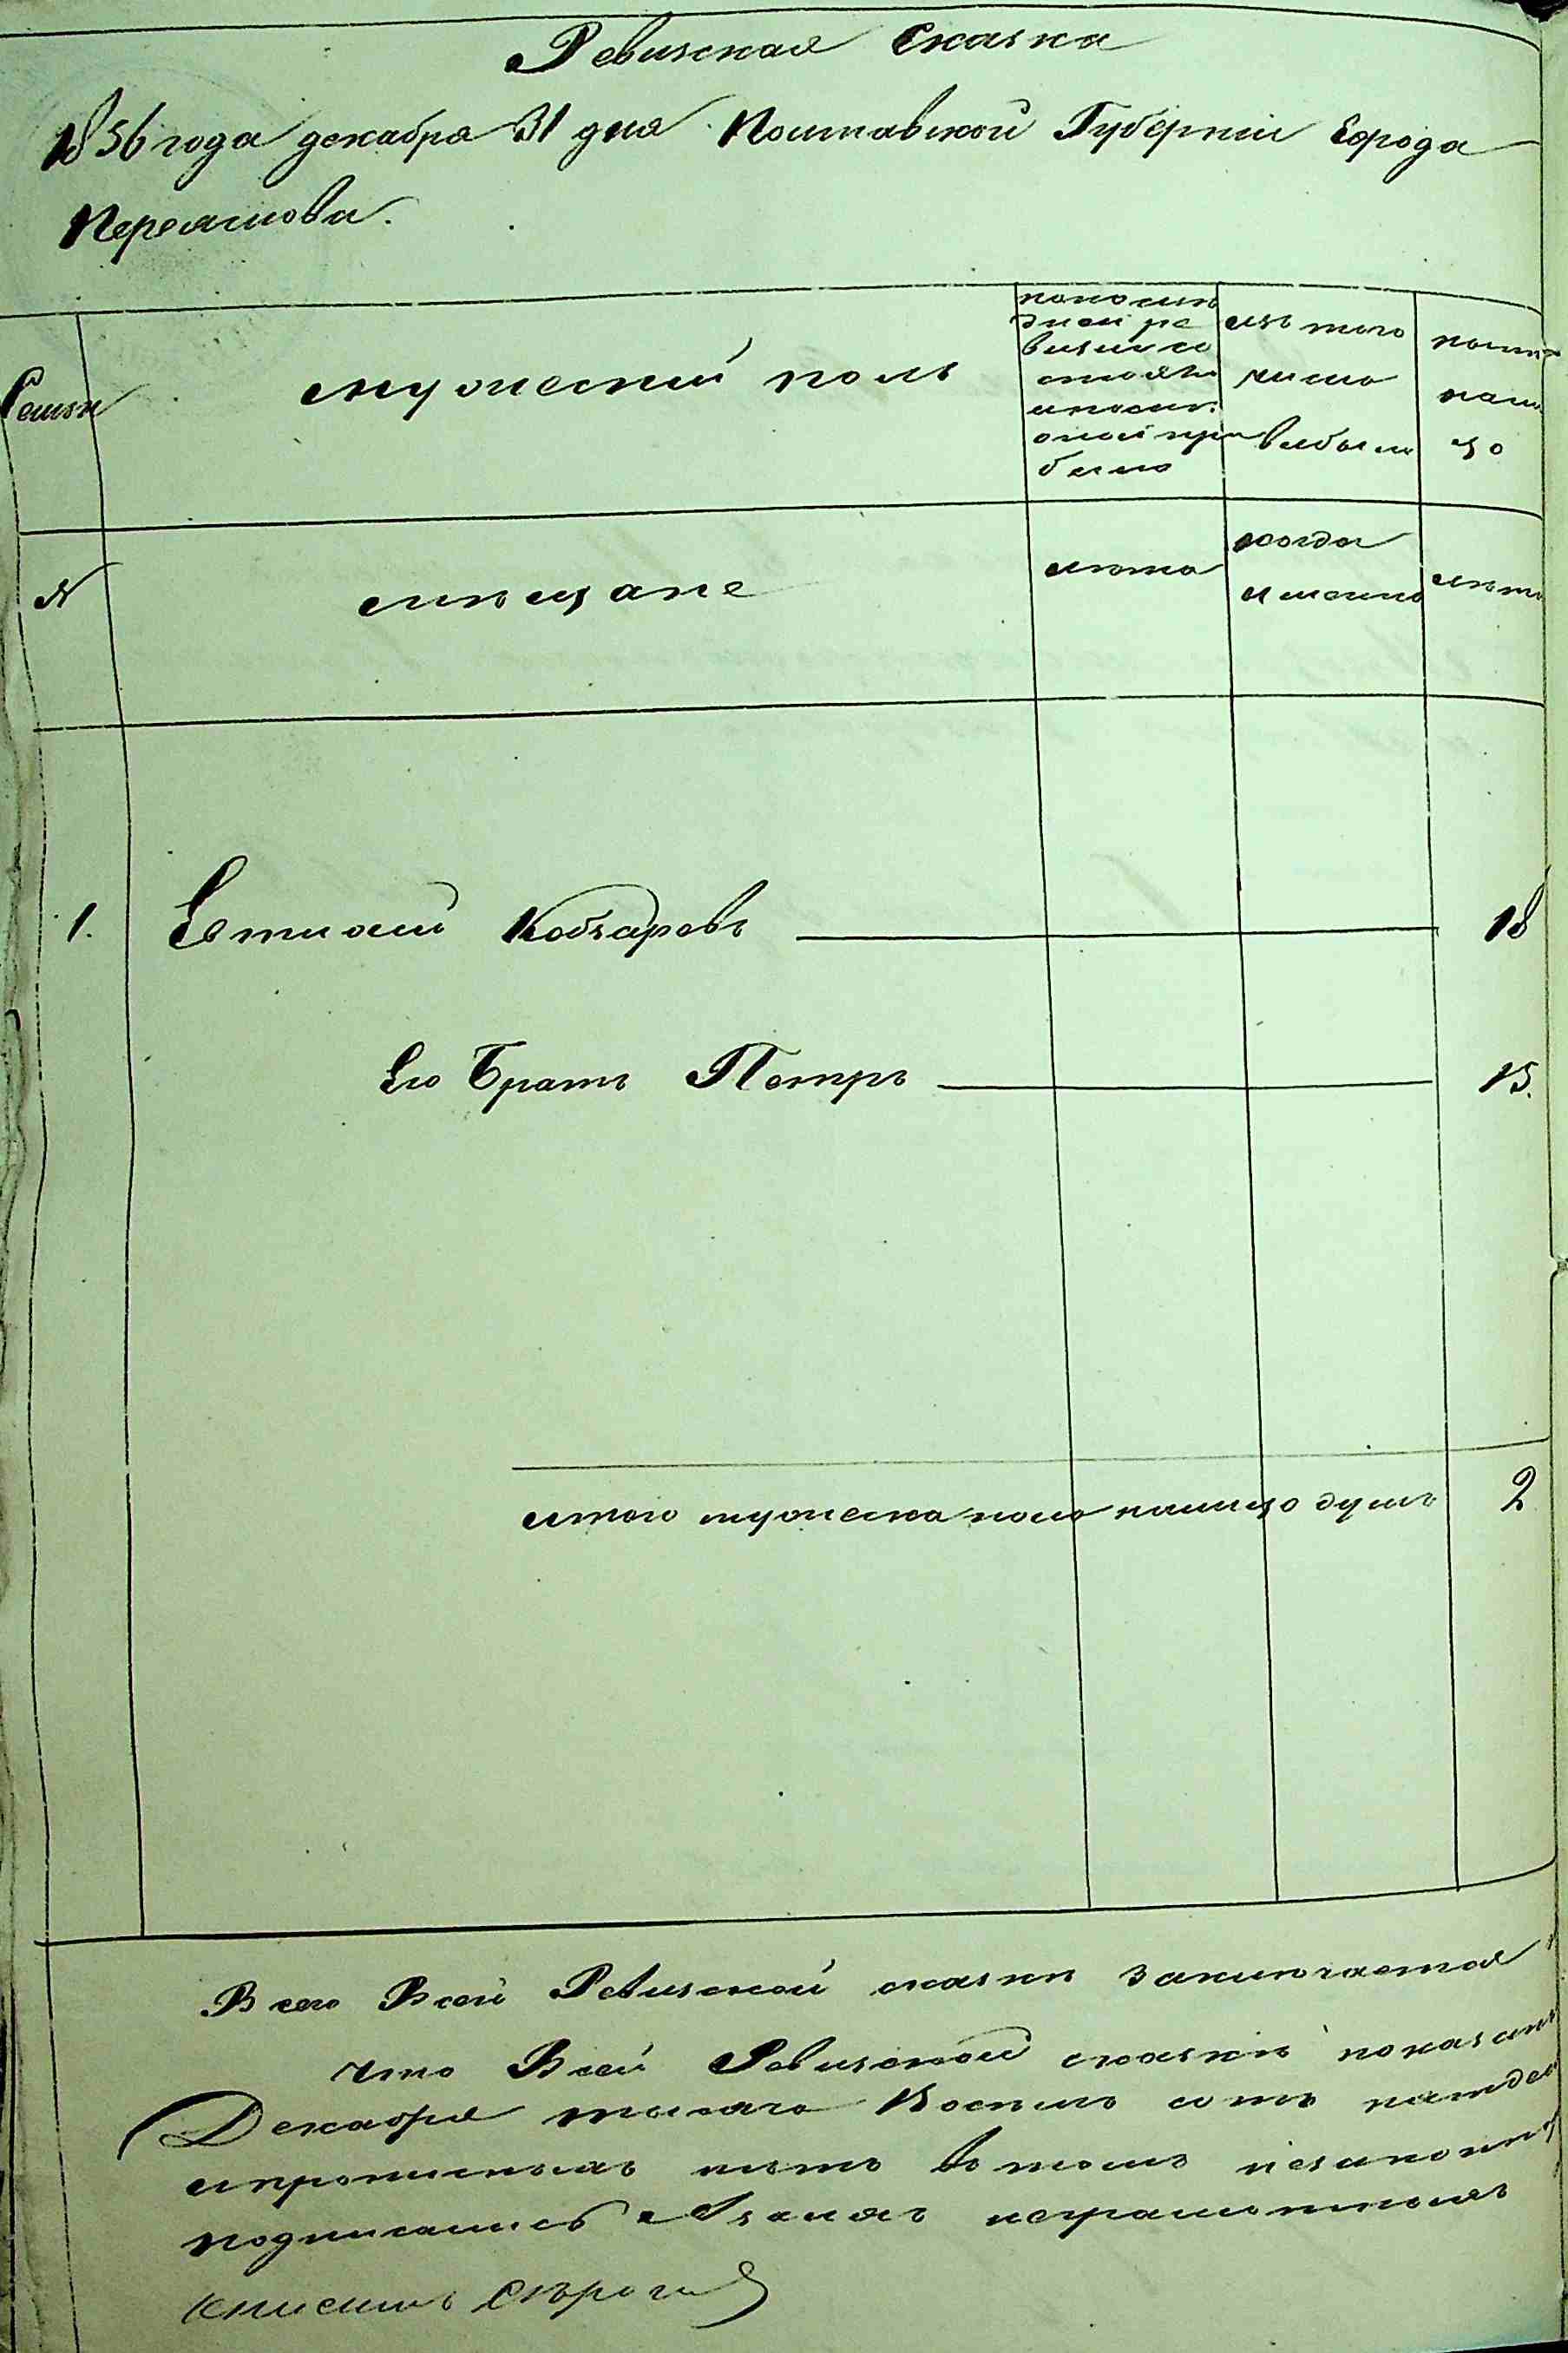 Ревизская Сказка
1856 года декабря 31 дня Полтавской Губернии Города
Переяслова.
Семьи
мужеский полъ
по послѣ
дней ре
визіи со
стояло
и послѣ
оной при
было
изъ того
числа
выбыло
ныне
нали
цо
N
мѣщане
лѣта
когда
именно
лѣта
1. Евтихій Кобзаревъ 18
Его Братъ Петръ 15.
итого мужеска пола налицо душъ 2
Всего Всей Ревизской сказки заключается
что Всей Ревизской сказкѣ показан
Декабря тысяча Восемь сотъ пятдес
и прописныхъ нѣтъ въ томъ
подписались неграмотныхъ